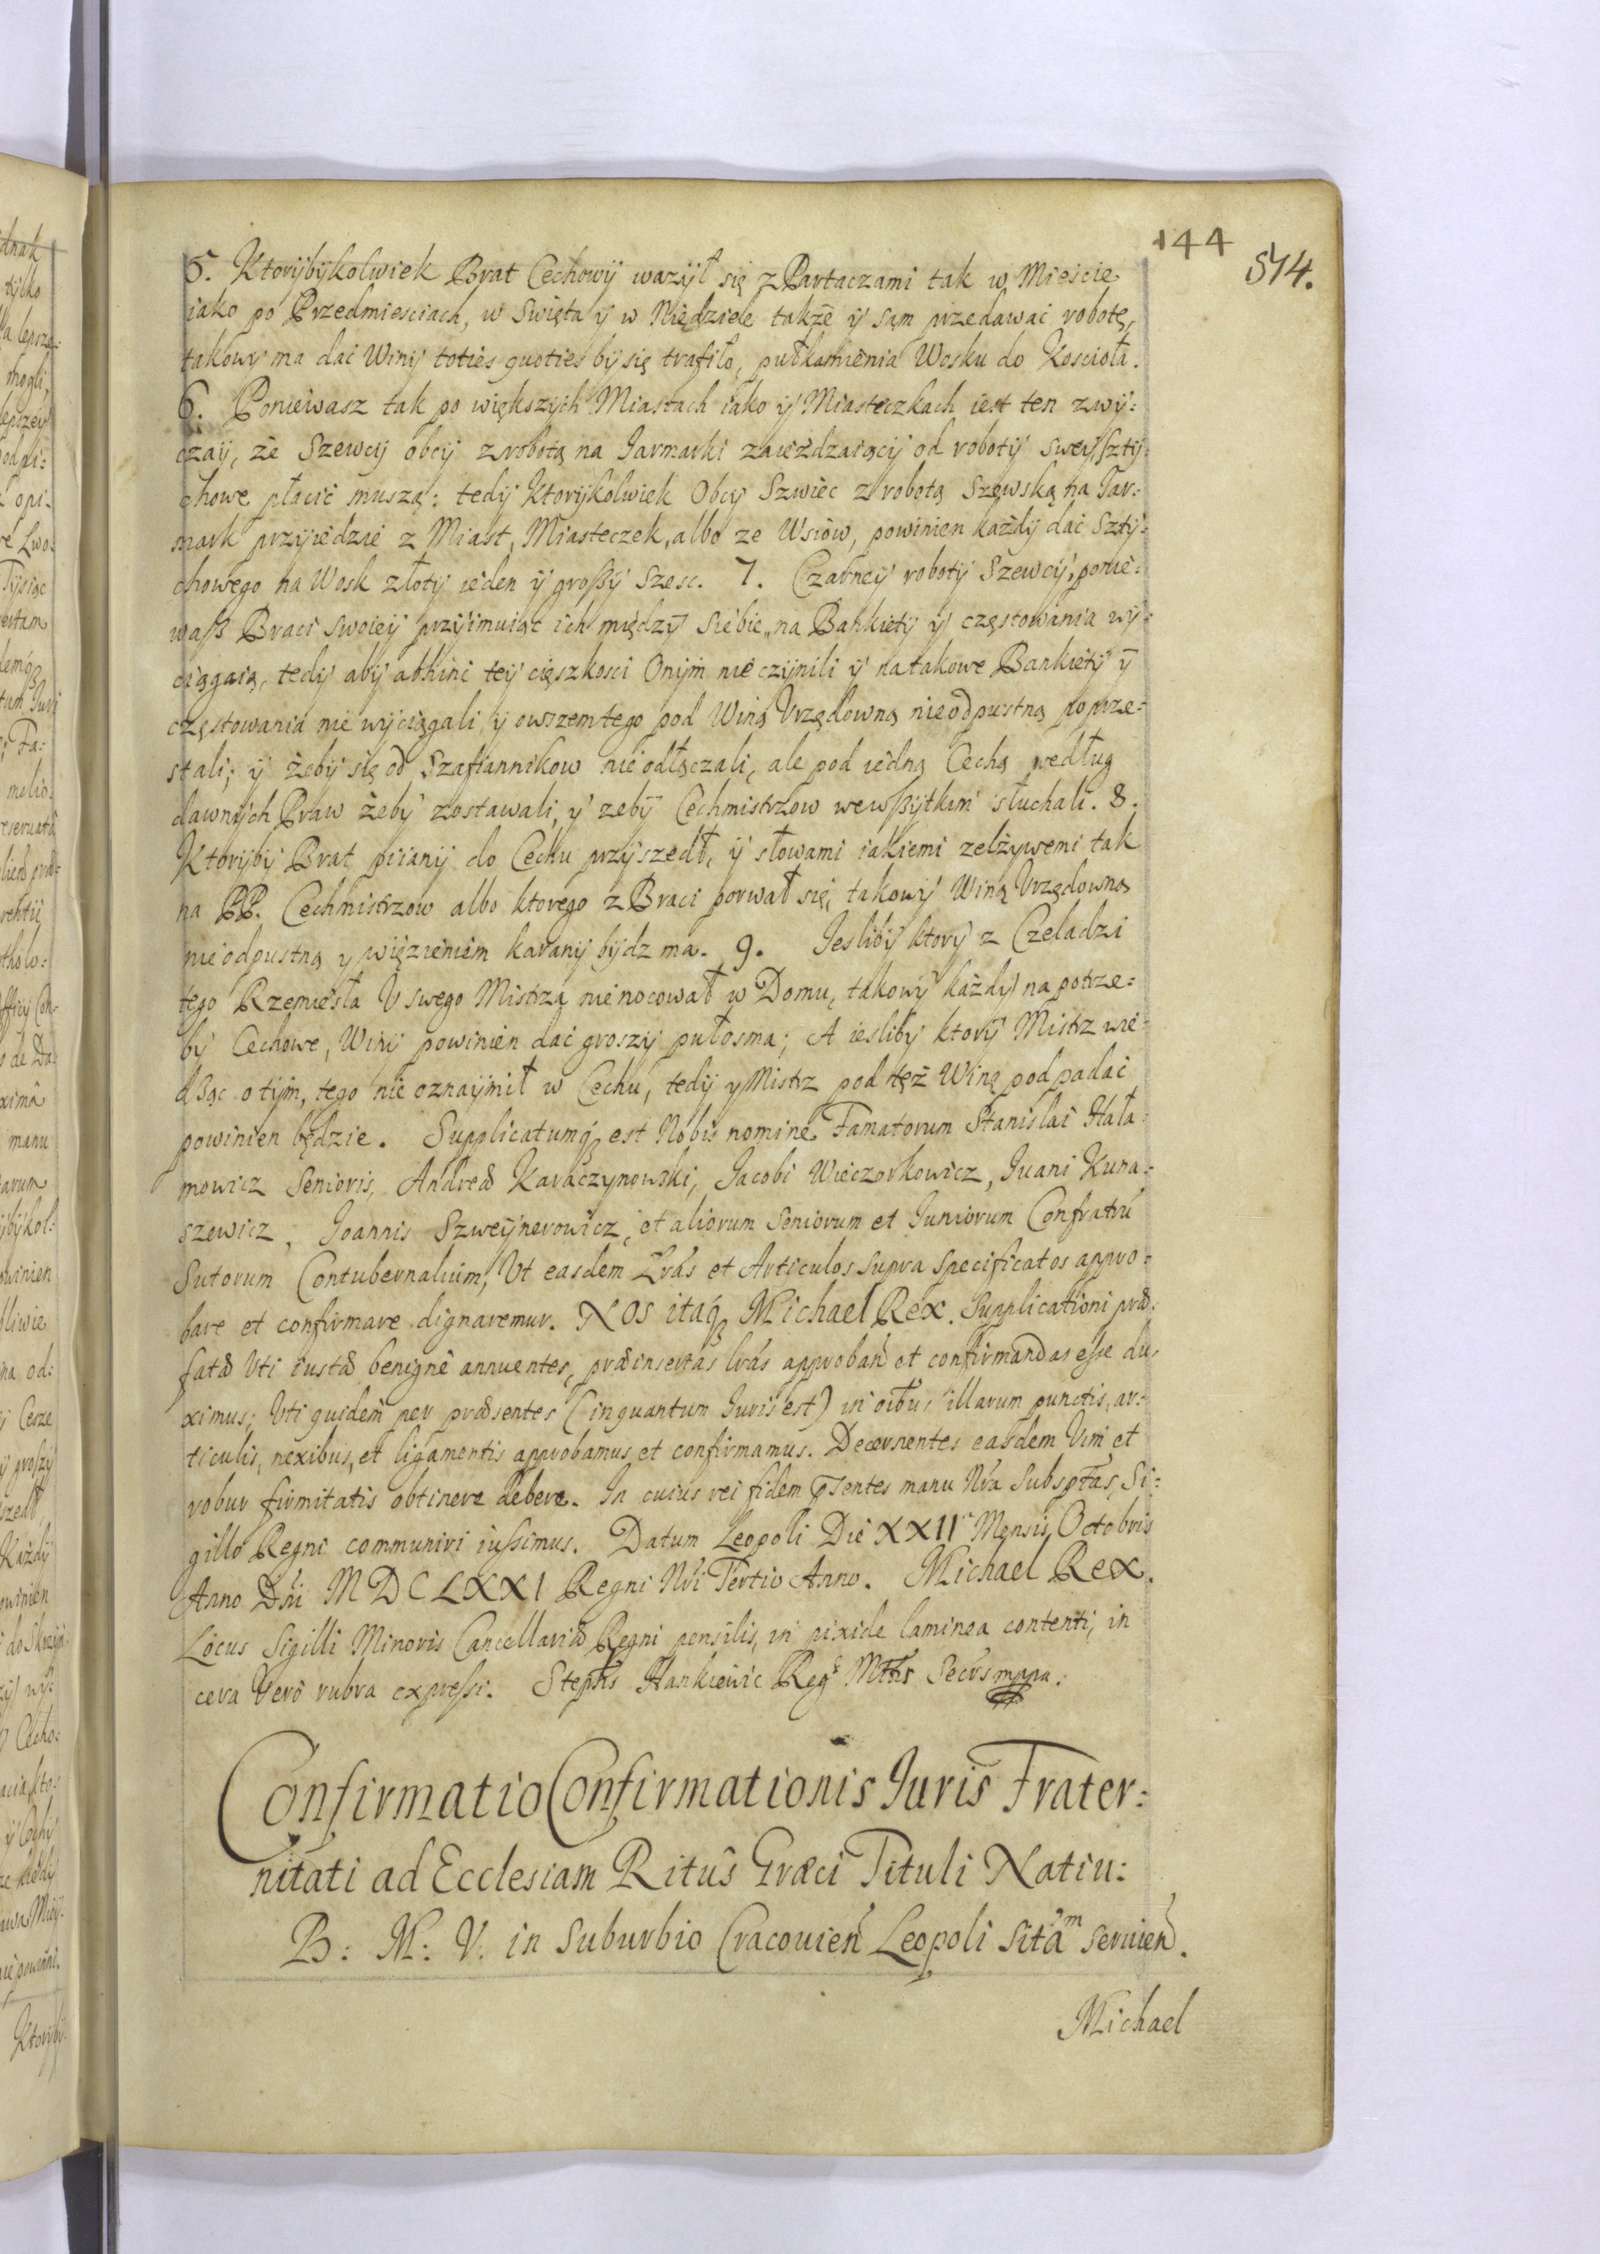 144
574.
5. Ktorybykolwiek Brat Cechowy wazył się z Partaczami tak w Mieście
iako po Przedmiesciach, w Swięta y w Niedziele także y sąm przedawać robotę,
takowy ma dać Winy toties quoties by się trafiło, pułkamienia Wosku do Kościoła.
6. Poniewasz tak po większych Miastach iako y Miasteczkach iest ten zwy:
czay, że Szewcy obcy z robotą na Iarmarki zaieżdzaiący od roboty swey Szty:
chowe płacić muszą: tedy Ktorykolwiek Obcy Szwiec z robotą Szewską na Iar:
mark przyiedzie z Miast, Miasteczek, albo ze Wsiow, powinien każdy dać Szty:
chowego na Wosk złoty ieden y groszy szesc. 7. Czarney roboty Szewcy, ponie:
waß Braci swoiey przyimuiąc ich między siebie, na Bankiety y częstowania wy:
ciągaią, tedy aby abhinc tey cięszkosci Onym nie czynili y na takowe Bankiety y
częstowania nie wyciągali, y owszem tego pod Winą Vrzędowną nieodpustną poprze:
stali; y żeby się od Szafiannikow nie odłączali, ale pod iedną Cechą według
dawnych Praw żeby zostawali, y zeby Cechmistrzow we wßytkim słuchali. 8.
Ktoryby Brat piiany do Cechu przyszedł, y słowami iakiemi zelżywemi tak
na PP. Cechmistrzow albo ktorego z Braci porwał się, takowy Winą Vrzędowną
nieodpustną y więzieniem karany bydz ma. 9. Iesliby ktory z Czeladzi
tego Rzemiesła V swego Mistrza nienocował w Domu, takowy każdy na potrze:
by Cechowe, Winy powinien dać groszy pułosma; A iesliby ktory Mistrz wie:
dząc o tym, tego nie oznaymił w Cechu, tedy y Mistrz pod tęż Winę podpadać
powinien będzie. Supplicatumq3 est Nobis nomine Famatorum Stanislai Hała:
mowicz Senioris, Andreæ Karaczynowski, Iacobi Wieczorkowicz, Iuani Kuna:
szewicz, Ioannis Szweynerowicz, et aliorum Seniorum et Iuniorum Confratrū
Sutorum Contubernalium, Vt easdem Lrás et Articulos supra specificatos appro:
bare et confirmare dignaremur. NOS itaq3 Michael Rex. Supplicationi præ:
fatæ Vti iustæ benignè annuentes, præinsertas lrás approband et confirmandas esse du:
ximus; Vti quidem per præsentes (in quantum Iuris est) in oibus illarum punctis, ar:
ticulis, nexibus, et ligamentis approbamus et confirmamus. Decernentes easdem Vim et
robur firmitatis obtinere debere. In cuius rei fidem pñsentes manu Nrâ Subsptas, Si:
gillo Regni communiri iussimus. Datum Leopoli Die XXII Mensis Octobris
Anno Dñi MDCLXXI Regni Nri Tertio Anno. Michael Rex.
Locus Sigilli Minoris Cancellariæ Regni pensilis, in pixide laminea contenti, in
cera Verò rubra expressi. Stephs Hankiewic Reg Mttis Secrs mppa.
Confirmatio Confirmationis Iuris Frater:
nitati ad Ecclesiam Ritûs Græci Tituli Natiu:
B: M: V. in Suburbio Cracouień Leopoli Sitam seruień.
Michael